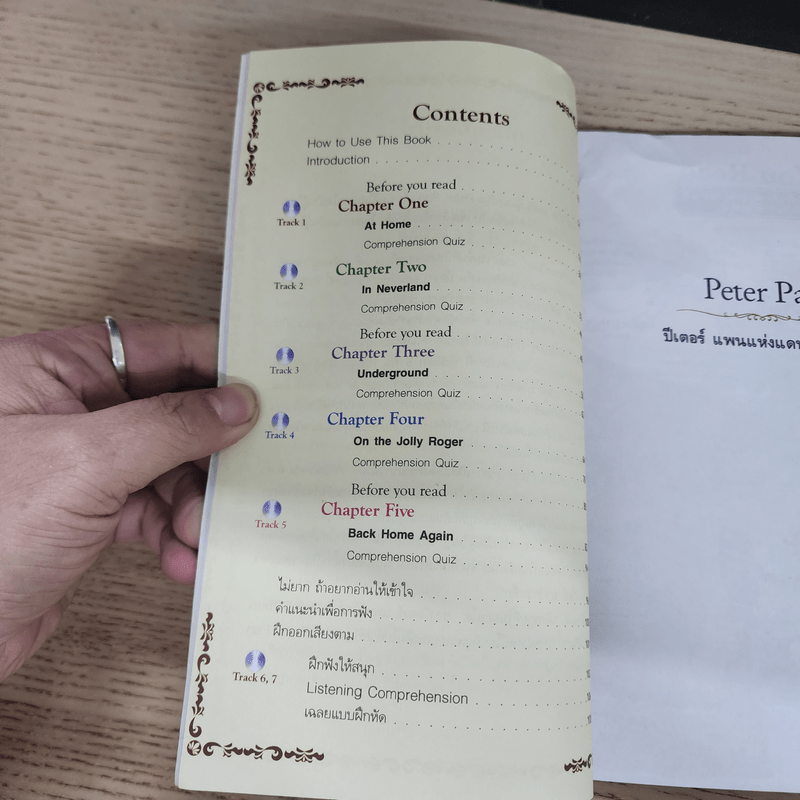 Contents
How to Use This Book
Introduction
Before you read
Track 1
Chapter One
At Home
Comprehension Quiz
Track 2
Chapter Two
In Neverland
Comprehension Quiz
Before you read
Track 3
Chapter Three
Underground
Comprehension Quiz
Track 4
Chapter Four
On the Jolly Roger
Comprehension Quiz
Before you read
Track 5
Chapter Five
Back Home Again
Comprehension Quiz
ไม่ยาก ถ้าอยากอ่านให้เข้าใจ
คำแนะนำเพื่อการฟัง
ฝึกออกเสียงตาม
Track 6, 7
ฝึกฟังให้สนุก
Listening Comprehension
เฉลยแบบฝึกหัด
Peter Pa
ปีเตอร์ แพนแห่งแดน